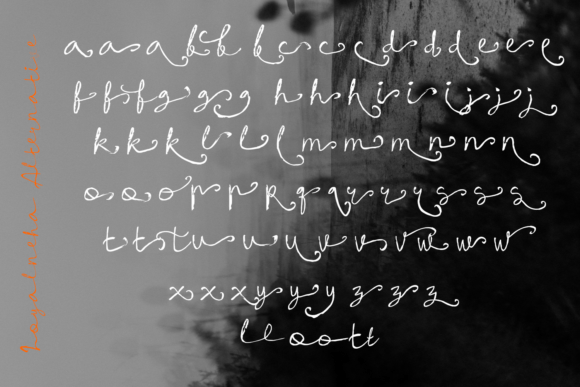 a a a b b b c c c d d d e e e
f f f g g g h h h i i i j j j
k k k l l l m m m n n n
o o o p p p q q r r r s s s
t t t u u u v v v w w w
x x x y y y z z z
ll oo tt